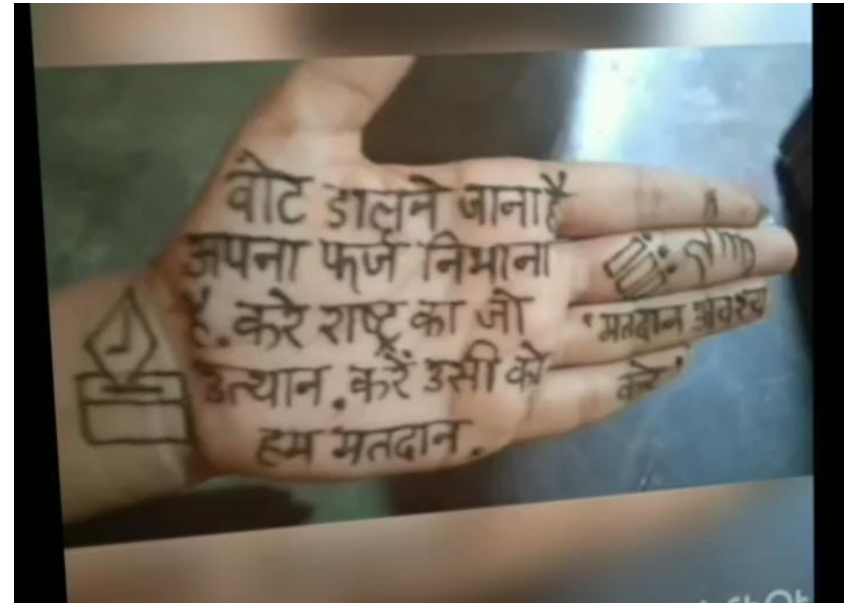 वोट डालने जाना है
अपना फर्ज निभाना
है. करे राष्ट्र का जो
उत्थान. करें उसी को
हम मतदान.
'मतदान अवश्य
करें'